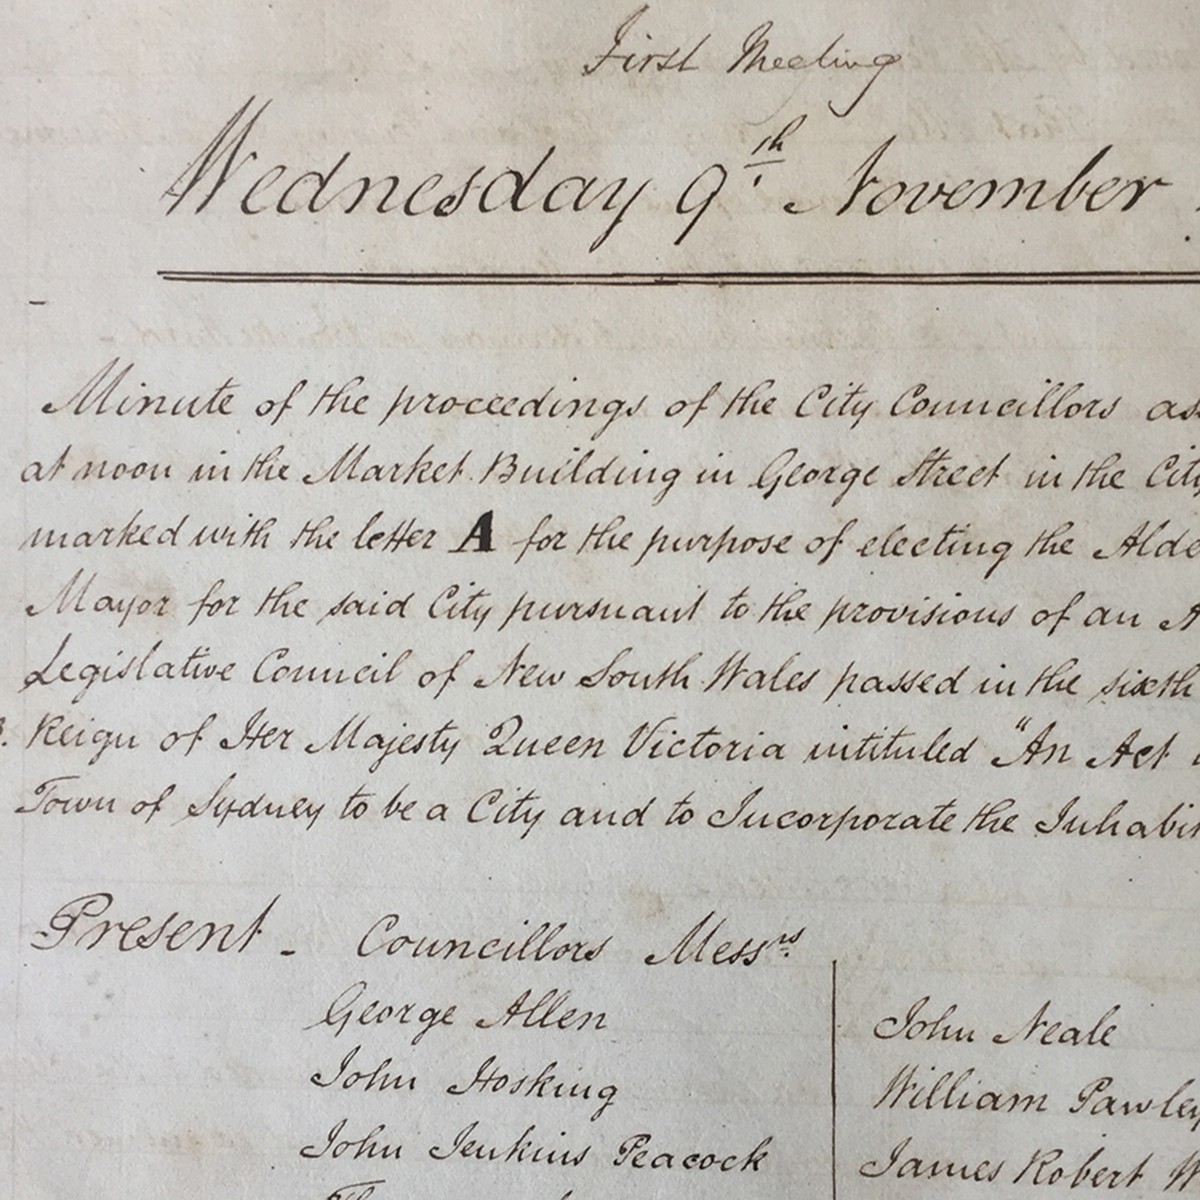 First Meeting
Wednesday 9th November
Minute of the proceedings of the City Councillors
at noon in the Market Building in George Street in the City
marked with the letter A for the purpose of electing the Alde
Mayor for the said City pursuant to the provisions of an A
Legislative Council of New South Wales passed in the sixth
Reign of Her Majesty Queen Victoria intituled "An Act
Town of Sydney to be a City and to Incorporate the Inhabi
Present - Councillors Messrs.
George Allen
John Hosking
John Jenkins Peacock
John Neale
William Pawley
James Robert W